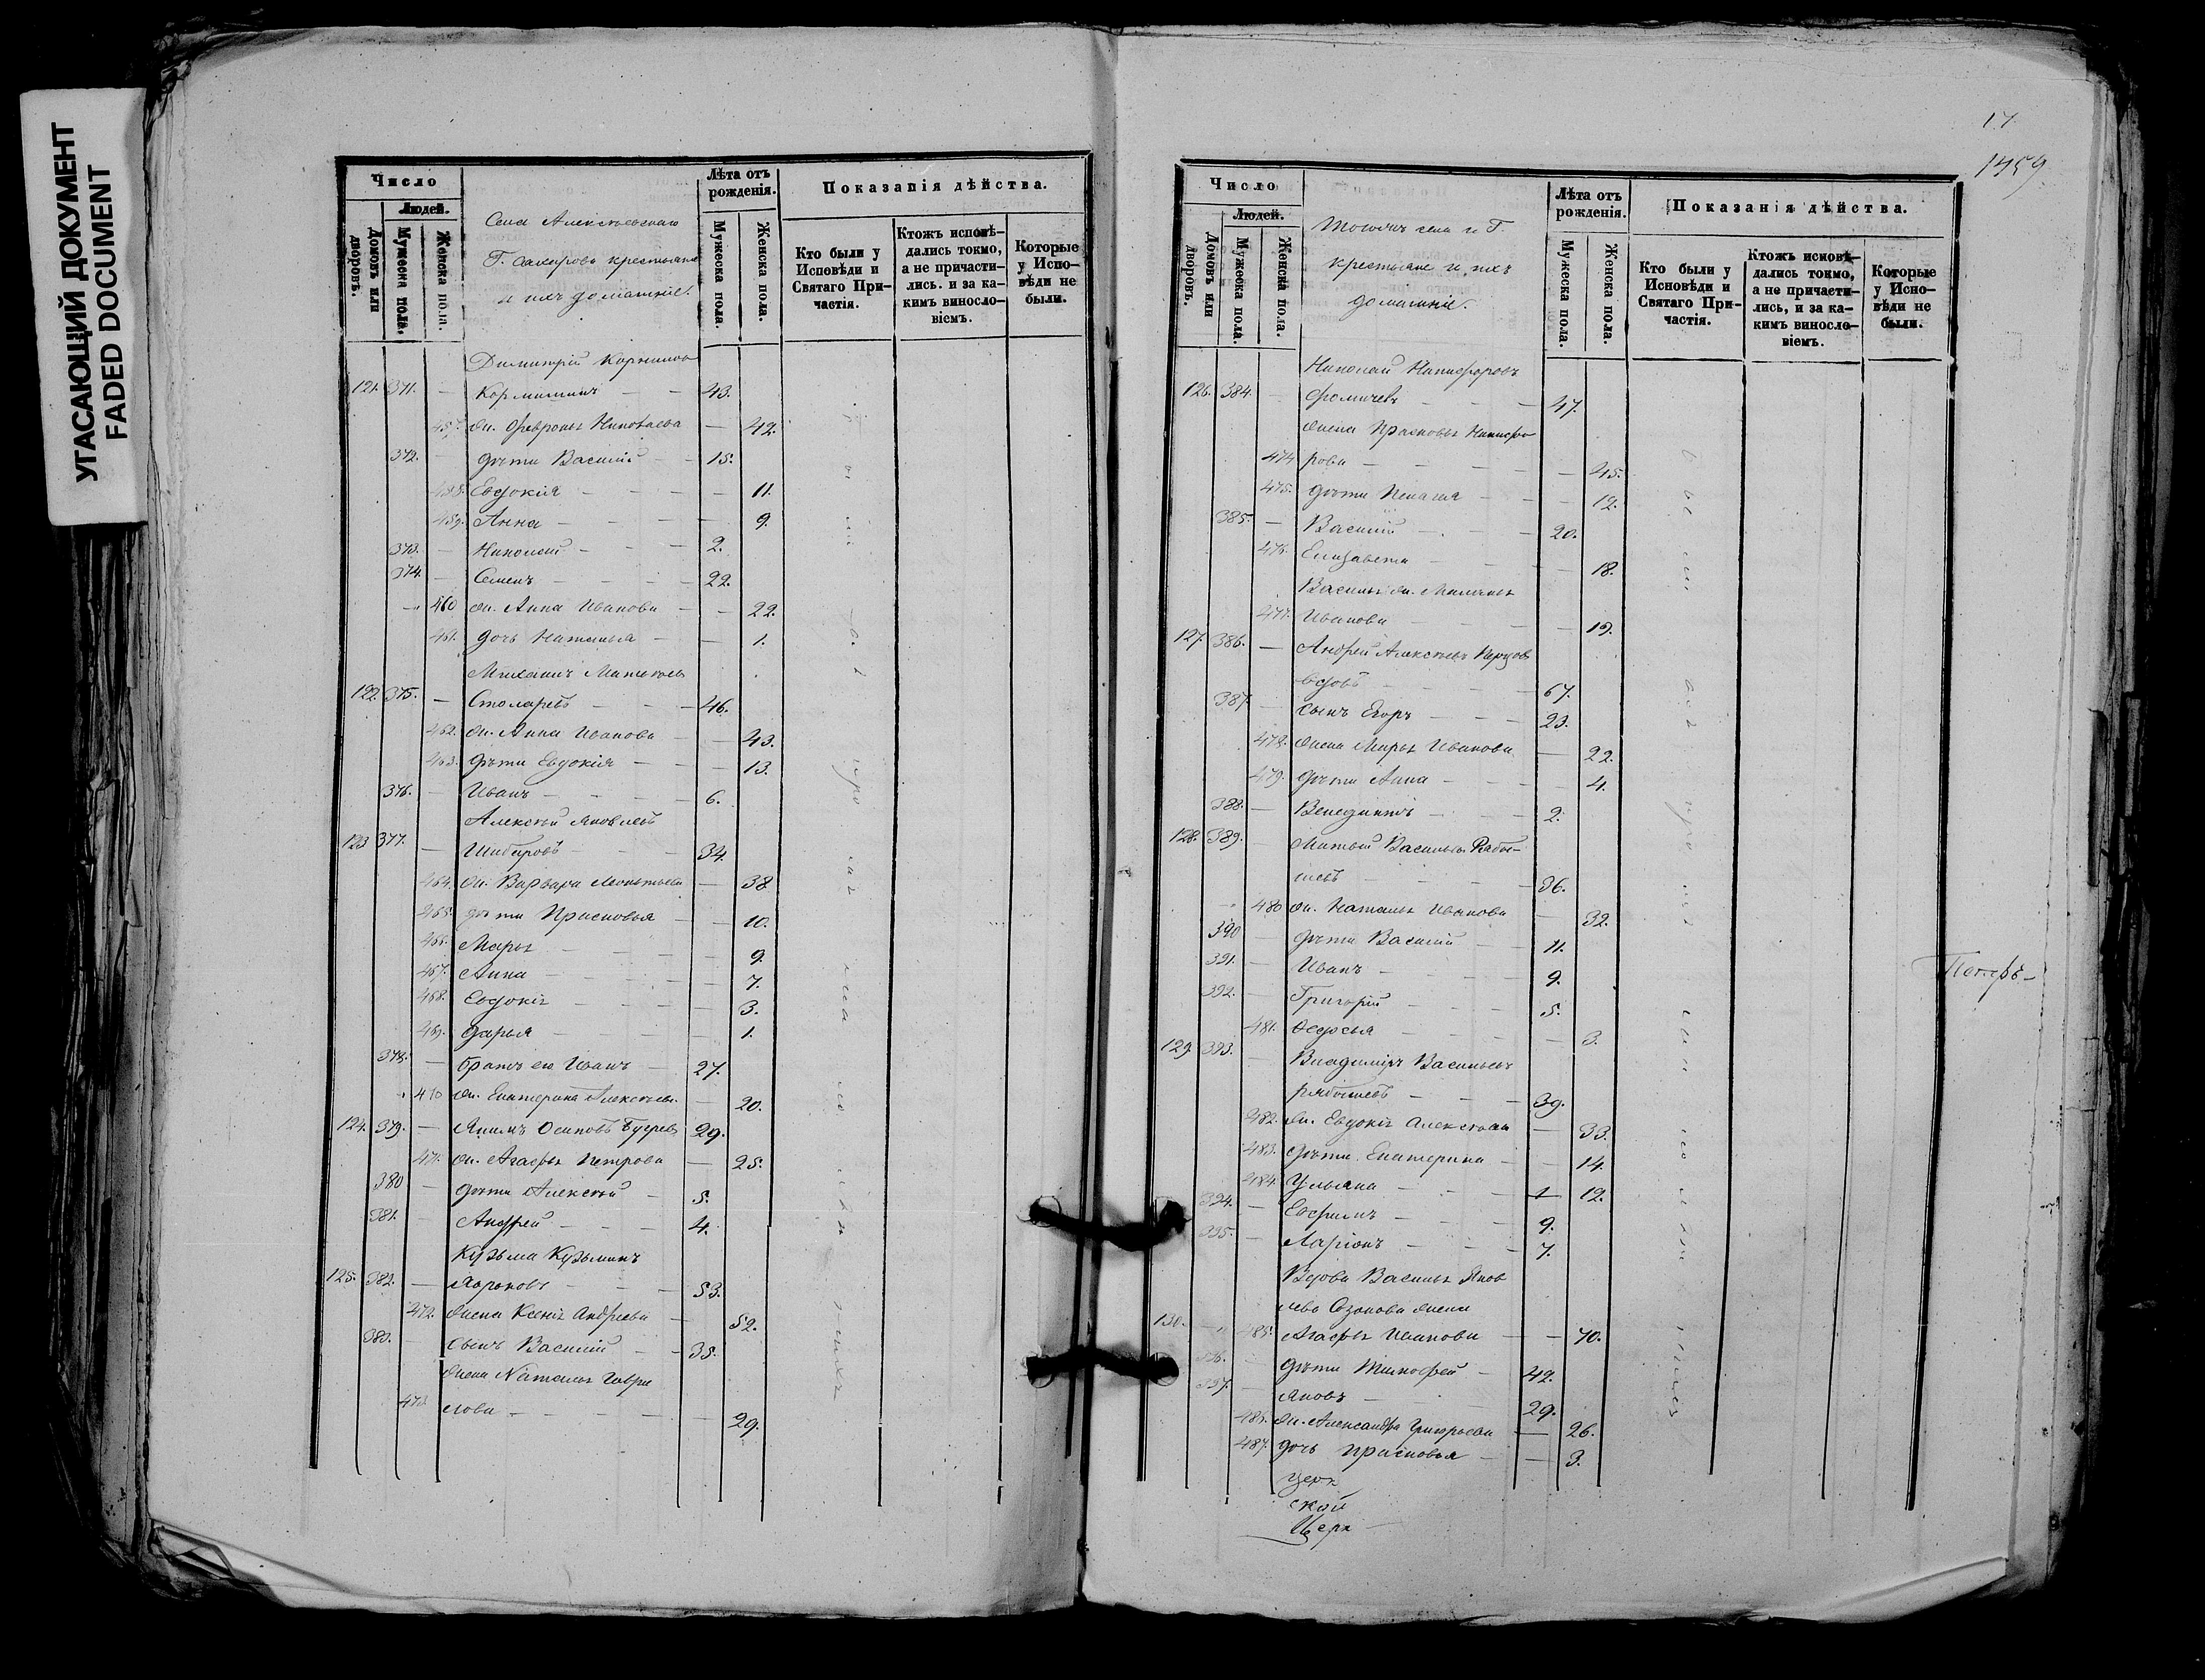 УГАСАЮЩИЙ ДОКУМЕНТ
FADED DOCUMENT
Число
Людей.
Домовъ или дворовъ.
Мужеска пола.
Женска пола.
Села Алексѣевскаго
Г. Сахарова крестьяне
и ихъ домашніе.
Лѣта отъ рожденія.
Мужеска пола.
Женска пола.
Показанія дѣйства.
Кто были у Исповѣди и Святаго Причастія.
Ктожъ исповѣдались токмо, а не причастились. и за какимъ винословіемъ.
Которые у Исповѣди не были.
Димитрій Корнилов
121. 371. — Кормишинъ — — 43.
457. Ж. Февронья Николаева — 42.
372. — Дѣти Василій — — 15.
458. Евдокія — — — — 11.
459. Анна — — — — 9.
373. — Николай — — — 2.
374. — Семенъ — — — — 22.
460 Ж. Анна Иванова — — 22.
461. дочь Наталья — — 1.
Михаилъ Матвѣевъ
122. 375. — Столяревъ — — — 46.
462. Ж. Анна Иванова — — 43.
463. Дѣти Евдокія — — — 13.
376. — Иванъ — — — — 6.
Алексѣй Яковлевъ
123 377. — Шибаровъ — — — 34.
464. Ж. Варвара Леонтьева — 38
465. дѣти Прасковья — — 10.
466. Марья — — — — 9.
467. Анна — — — — 7.
468. Евдокія — — — — 3.
469. Дарья — — — — 1.
378. — Братъ его Иванъ — 27.
470 Ж. Екатерина Алексѣев. — 20.
124. 379. — Якимъ Осиповъ Бугрев 29.
471. Ж. Агафья Петрова — 25.
380 — Дѣти Алексѣй — 5.
381. — Андрей — — — 4.
Кузьма Кузьминъ
125. 382. — — — 53.
472. Жена Ксенія Андреева — 52.
383. — Сынъ Василій — — 35.
Жена Наталья Гаври
473. лова — — — — — 29.
17
1459
Число
Людей.
Домовъ или дворовъ.
Мужеска пола.
Женска пола.
Тогожъ села и Г.
крестьяне и ихъ
домашніе.
Лѣта отъ рожденія.
Мужеска пола.
Женска пола.
Показанія дѣйства.
Кто были у Исповѣди и Святаго Причастія.
Ктожъ исповѣдались токмо, а не причастились, и за какимъ винословіемъ.
Которые у Исповѣди не были.
Николай Никифоровъ
126. 384. — Фомичевъ — — — 47.
Жена Прасковья Никифо
474 рова — — — — — 45.
475. Дѣти Пелагія — — — 12.
385. — Василій — — — 20.
476. Елизавета — — — — 18.
Василья Ж. Маланья
477. Иванова — — — — 19.
127. 386. — Андрей Алексѣевъ
вдовъ — — — — 67.
387. — Сынъ Егоръ — — — 23.
478. Жена Марья Иванова — 22.
479. Дѣти Анна — — — — 4.
388. — Венедиктъ — — — 2.
128. 389. — Матвѣй Васильев. Рябы-
шевъ — — — — 36.
480 Ж. Наталья Иванова — 32.
390 — Дѣти Василій — — 11.
391. — Иванъ — — — — 9.
392. — Григорій — — — 5.
481. Ѳедосья — — — — 3.
129. 393. — Владиміръ Васильевъ
Рябышевъ — — — 39.
482. Ж. Евдокія Алексѣева — 33.
483. Дѣти Екатерина — — 14.
484. Ульяна — — — — 12.
394. — Ефимъ — — — — 9.
395. — Ларіонъ — — — 7.
Вдова Василья Яков
лева Созонова жена
130. — 485. Агафья Иванова — — 70.
396. — Дѣти Тимофей — 42.
397. — Яковъ — — — 29.
486. Ж. Александра Григорьева — 26.
487. дочь Прасковья — — 3.
Церк
ской
Церк